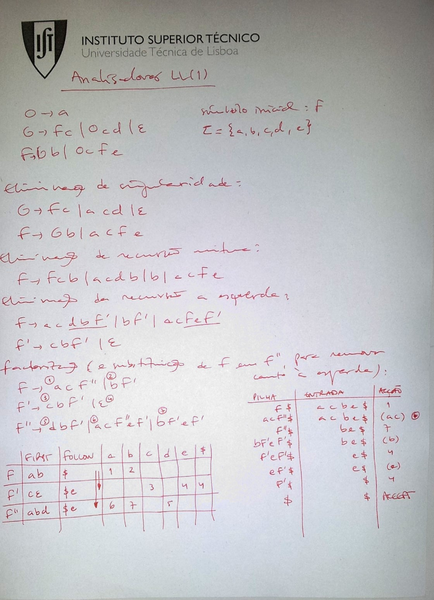 iſt
INSTITUTO SUPERIOR TÉCNICO
Universidade Técnica de Lisboa
Analisadores LL(1)
O → a símbolo inicial: F
G → Fc | Ocd | ε Σ = {a, b, c, d, e}
F → Gb | OcFe
Eliminação de singularidade:
G → Fc | acd | ε
F → Gb | acFe
Eliminação de recursão mútua:
F → Fcb | acdb | b | acFe
Eliminação de recursão à esquerda:
F → acdbF' | bF' | acFeF'
F' → cbF' | ε
Factorização (e substituição de F em F", para remover canto à esquerda):
F → ① acF" | ② bF'
F' → ③ cbF' | ε ④
F" → ⑤ dbF' | ⑥ acF"eF' | ⑦ bF'eF'
FIRST FOLLOW a b c d e $
F ab $ 1 2
F' cε $e 3 4 4
F" abd $e 6 7 5
PILHA ENTRADA ACÇÃO
F$ acbe$ 1
acF"$ acbe$ (ac)
F"$ be$ 7
bF'eF'$ be$ (b)
F'eF'$ e$ 4
eF'$ e$ (e)
F'$ $ 4
$ $ ACCEPT